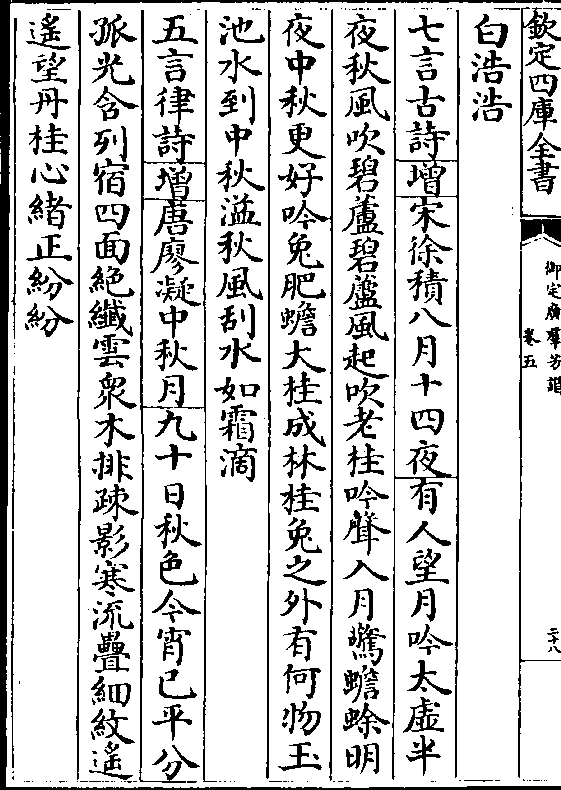 欽定四庫全書
御定廣羣芳譜
卷五
二十八
白浩浩
七言古詩增宋徐積八月十四夜有人望月吟太虛半
夜秋風吹碧蘆碧蘆風起吹老桂吟聲入月驚蟾蜍明
夜中秋更好吟兔肥蟾大桂成林桂兔之外有何物玉
池水到中秋溢秋風刮水如霜滴
五言律詩增唐廖凝中秋月九十日秋色今宵已平分
孤光含列宿四面絶纖雲衆木排疎影寒流疊細紋遙
遙望丹桂心緒正紛紛